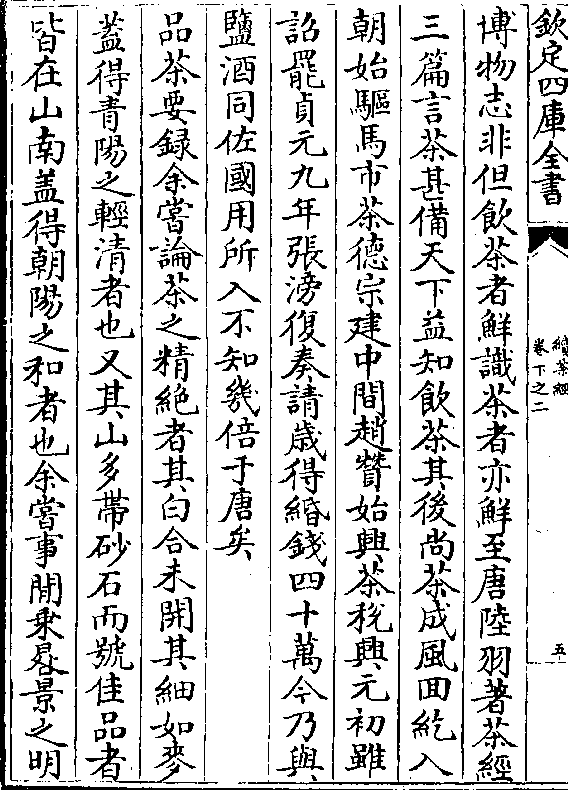 欽定四庫全書
續茶經
卷下之二
五
博物志非但飲茶者鮮識茶者亦鮮至唐陸羽著茶經
三篇言茶甚備天下益知飲茶其後尚茶成風回紇入
朝始驅馬市茶德宗建中間趙贊始興茶稅興元初雖
詔罷貞元九年張滂復奏請歲得緡錢四十萬今乃與
鹽酒同佐國用所入不知幾倍于唐矣
品茶要録余嘗論茶之精絶者其白合未開其細如麥
蓋得青陽之輕清者也又其山多帶砂石而號佳品者
皆在山南蓋得朝陽之和者也余嘗事閒乘晷景之明